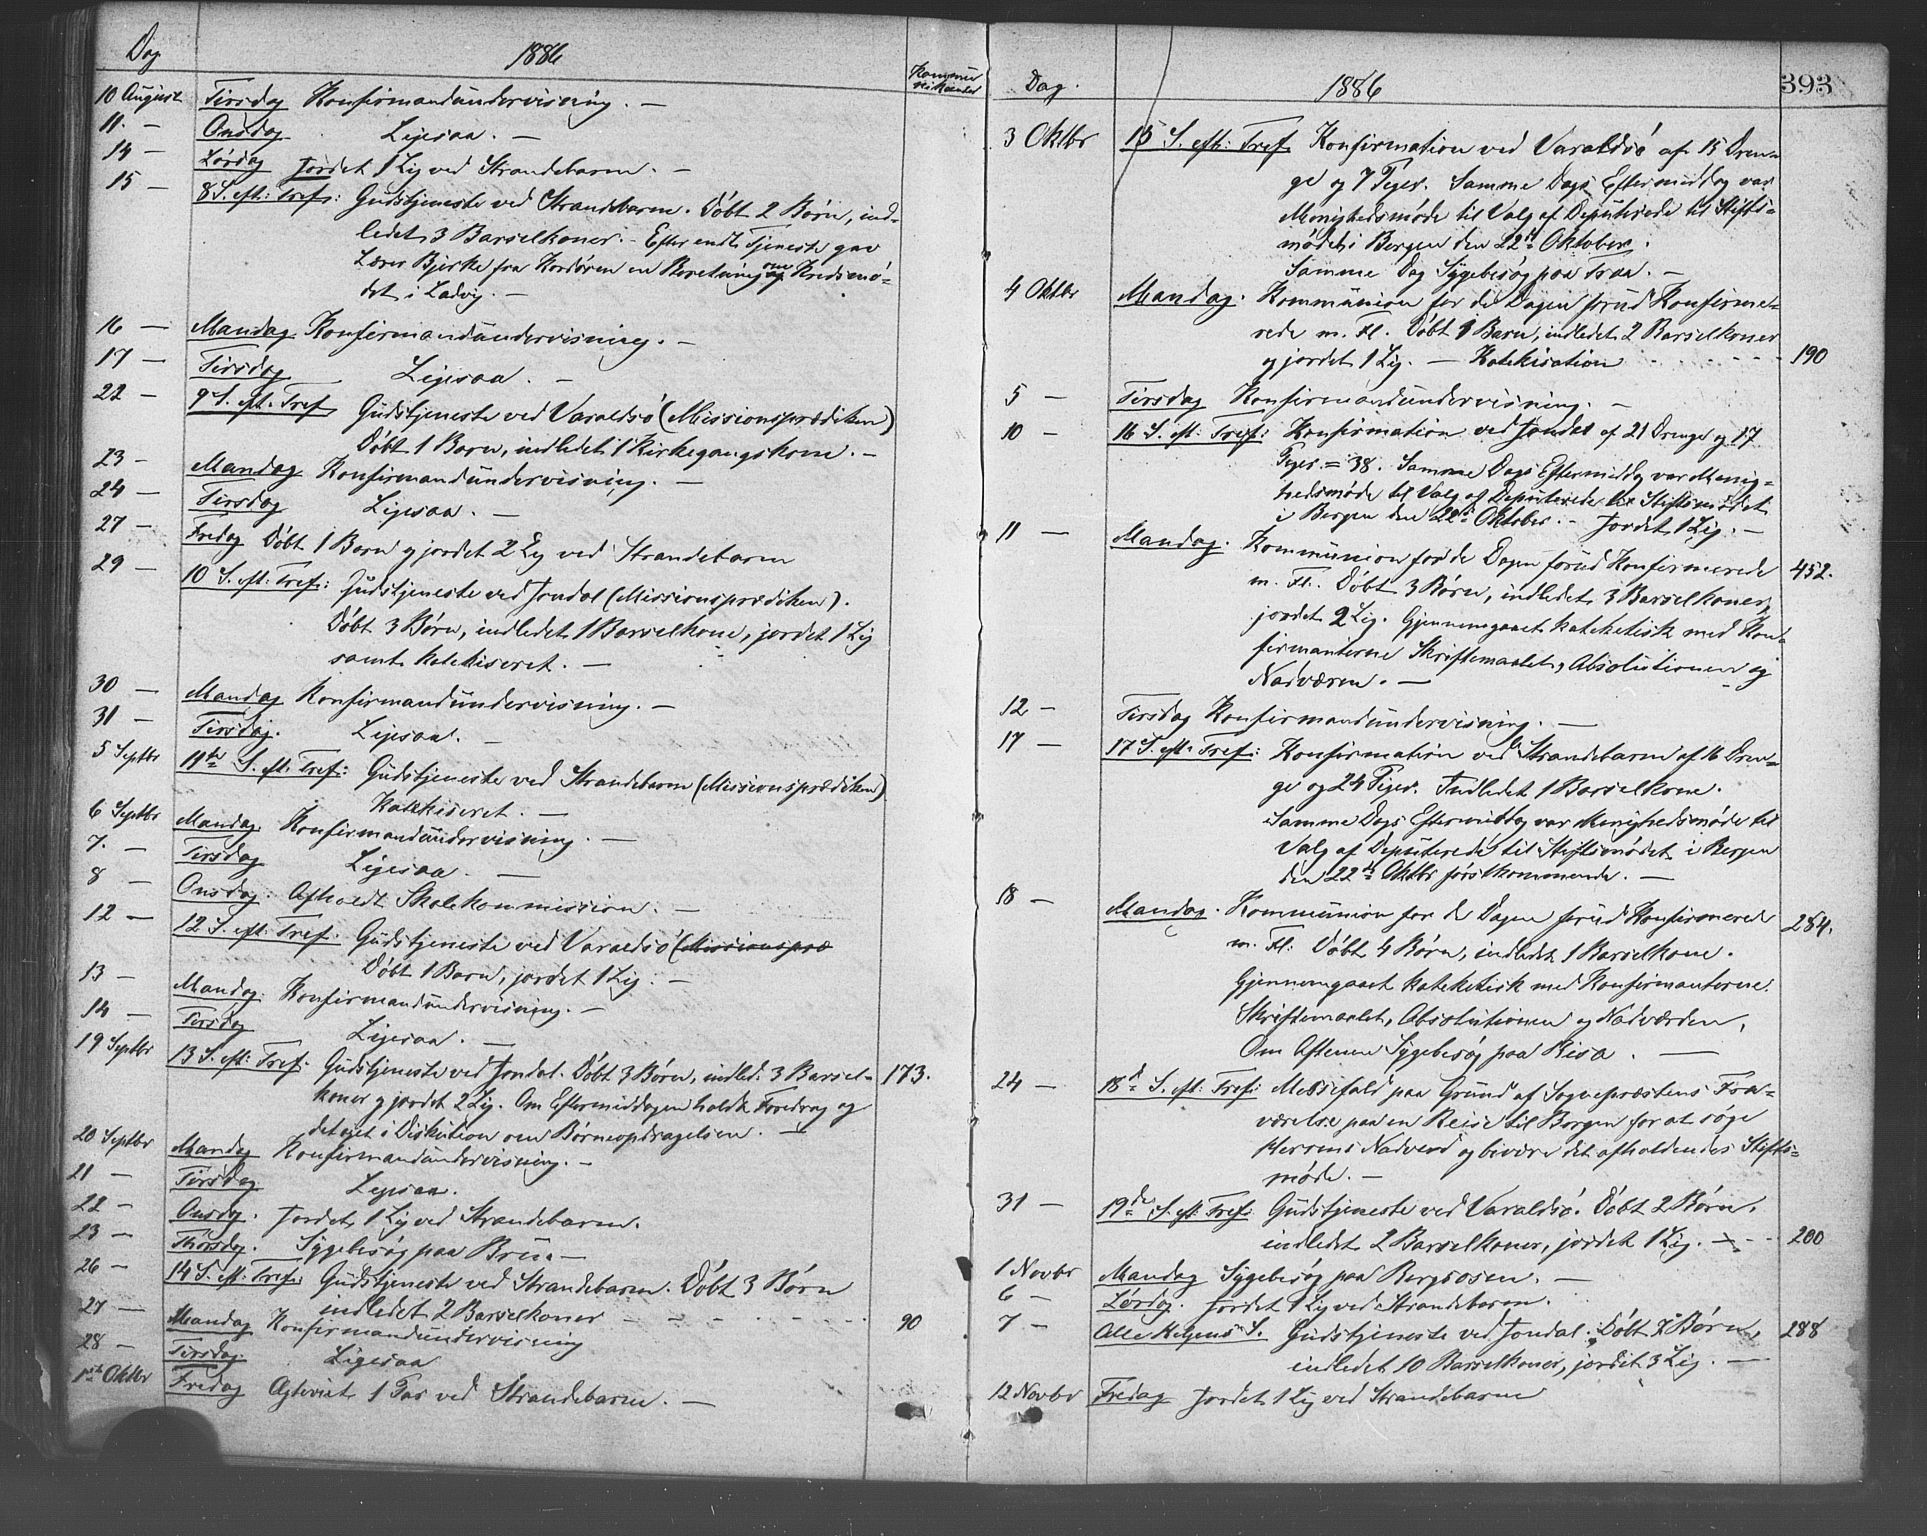 Dag 1886 Kommunikanter
10 August Tirsdag Konfirmandundervisning. —
11. — Onsdag Ligesaa. —
14 — Lørdag Jordet 1 Lig ved Strandebarm. —
15 — 8 S. eft: Tref: Gudstjeneste ved Strandebarm. Døbt 2 Børn, ind-
ledet 3 Barselkoner. - Efter endt Tjeneste gav
Lærer Bjerke fra en Beretning om Kredsmø-
det i Ladvig. —
16 — Mandag Konfirmandundervisning. —
17 — Tirsdag Ligesaa. —
22 — 9 S. eft. Tref Gudstjeneste ved Varaldsø (Missionsprædiken)
Døbt 1 Barn, indledet 1 Kirkegangskone. —
23 — Mandag Konfirmandundervisning. —
24 — Tirsdag Ligesaa. —
27 — Fredag Døbt 1 Barn og jordet 2 Lig ved Strandebarm
29 — 10 S. eft: Tref: Gudstjeneste ved Jondal (Missionsprædiken).
Døbt 3 Børn, indledet 1 Barselkone, jordet 1 Lig
samt katekiseret. —
30 — Mandag Konfirmandundervisning. —
31 — Tirsdag. Ligesaa. —
5 Septbr 11te S. eft. Tref: Gudstjeneste ved Strandebarm (Missionsprædiken)
Katekiseret. —
6 Septbr Mandag. Konfirmandundervisning. —
7. — Tirsdag Ligesaa. —
8 — Onsdag. Afholdt Skolekommission. —
12 — 12 S. eft: Tref. Gudstjeneste ved Varaldsø (Missionspræ
Døbt 1 Barn, jordet 1 Lig. —
13 — Mandag. Konfirmandundervisning. —
14 — Tirsdag Ligesaa. —
19 Septbr 13 S. eft: Tref. Gudstjeneste ved Jondal. Døbt 3 Børn, indled: 3 Barsel- 173.
koner og jordet 2 Lig. Om Eftermiddagen holdt Foredrag og
deltaget i Diskution om Børneopdragelsen. —
20 Septbr Mandag Konfirmandundervisning. —
21 — Tirsdag Ligesaa.
22 — Onsdag. Jordet 1 Lig ved Strandebarm.
23 — Thorsdag. Sygebesøg paa Bru. —
26 — 14 S. eft: Tref: Gudstjeneste ved Strandebarm. Døbt 3 Børn
indledet 2 Barselkoner - - - - - - - 90
27 — Mandag Konfirmandundervisning
28 — Tirsdag. Ligesaa
1ste Oktbr Fredag Ægteviet 1 Par ved Strandebarm. —
Dag. 1886 393
3 Oktbr 15 S. eft: Tref. Konfirmation ved Varaldsø af 15 Dren-
ge og 7 Piger. Samme Dags Eftermiddag var
Menighedsmøde til Valg af Deputerede til Stifts-
mødet i Bergen den 22de Oktober.
Samme Dag Sygebesøg paa Traa. —
4 Oktbr Mandag. Kommunion for de Dagen forud Konfirme-
rede m. Fl. Døbt 1 Barn, indledet 2 Barselkoner
og jordet 1 Lig. — Katekisation - - - - - 190
5 — Tirsdag Konfirmandundervisning. —
10 — 16 S. eft: Tref: Konfirmation ved Jondal af 21 Drenge og 17
Piger = 38. Samme Dags Eftermiddag var Menig-
hedsmøde til Valg af Deputerede til Stiftsmødet
i Bergen den 22de Oktober. - Jordet 1 Lig. —
11 — Mandag. Kommunion for de Dagen forud Konfirmerede 452.
m. Fl. Døbt 3 Børn, indledet 3 Barselkoner,
jordet 2 Lig. Gjennemgaaet kateketisk med Kon-
firmanterne Skriftemaalet, Absolutionen og
Nadværen. —
12 — Tirsdag Konfirmandundervisning. —
17 — 17 S. eft: Tref: Konfirmation ved Strandebarm af 16 Dren-
ge og 24 Piger. Indledet 1 Barselkone.
Samme Dags Eftermiddag var Menighedsmøde til
Valg af Deputerede til Stiftsmødet i Bergen
den 22de Oktbr førstkommende. —
18 — Mandag. Kommunion for de Dagen forud Konfirmerede 284.
m. Fl: Døbt 4 Børn, indledet 1 Barselkone.
Gjennemgaaet kateketisk med Konfirmanterne
Skriftemaalet, Absolutionen og Nadværden.
Om Aftenen Sygebesøg paa Risa. —
24 — 18d S. eft. Tref: Messefald paa Grund af Sognepræstens Fra-
værelse paa en Reise til Bergen for at søge
Herrens Nadverd og bivære det afholdendes Stifts-
møde. —
31 — 19de S. eft. Tref: Gudstjeneste ved Varaldsø. Døbt 2 Børn,
indledet 2 Barselkoner, jordet 1 Lig. — - - 200
1 Novbr Mandag Sygebesøg paa Bergsosen. —
6 — Lørdag. Jordet 1 Lig ved Strandebarm.
7 — Alle Helgens S. Gudstjeneste ved Jondal. Døbt Børn, 288
indledet 10 Barselkoner, jordet 3 Lig. —
12 Novbr Fredag Jordet 1 Lig ved Strandebarm